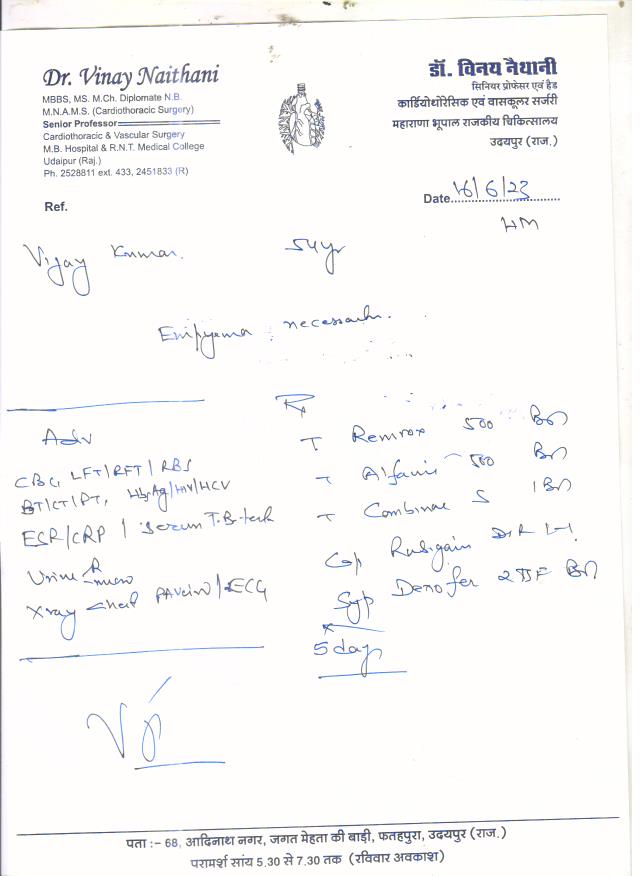 Dr. Vinay Naithani
MBBS, MS. M.Ch. Diplomate N.B.
M.N.A.M.S. (Cardiothoracic Surgery)
Senior Professor
Cardiothoracic & Vascular Surgery
M.B. Hospital & R.N.T. Medical College
Udaipur (Raj.)
Ph. 2528811 ext. 433, 2451833 (R)
Ref.
डॉ. विनय नैथानी
सिनियर प्रोफेसर एवं हैड
कार्डियोथोरेसिक एवं वासकूलर सर्जरी
महाराणा भूपाल राजकीय चिकित्सालय
उदयपुर (राज.)
Date 16/6/23
Vijay Kumar. 54yr
Empyema necessach.
Adv
CBC, LFT/RFT/RBS
BT/CT/PT, HbsAg/HIV/HCV
ESR/CRP / Serum T.B.
Urine R
Xray Chest PAview/ECG
Rx
T Remrox 500 BD
T 500 BD
T S BD
Cap
Syp Denofer 2TSF BD
x
5 day
पता :– 68, आदिनाथ नगर, जगत मेहता की बाड़ी, फतहपुरा, उदयपुर (राज.)
परामर्श सांय 5.30 से 7.30 तक (रविवार अवकाश)